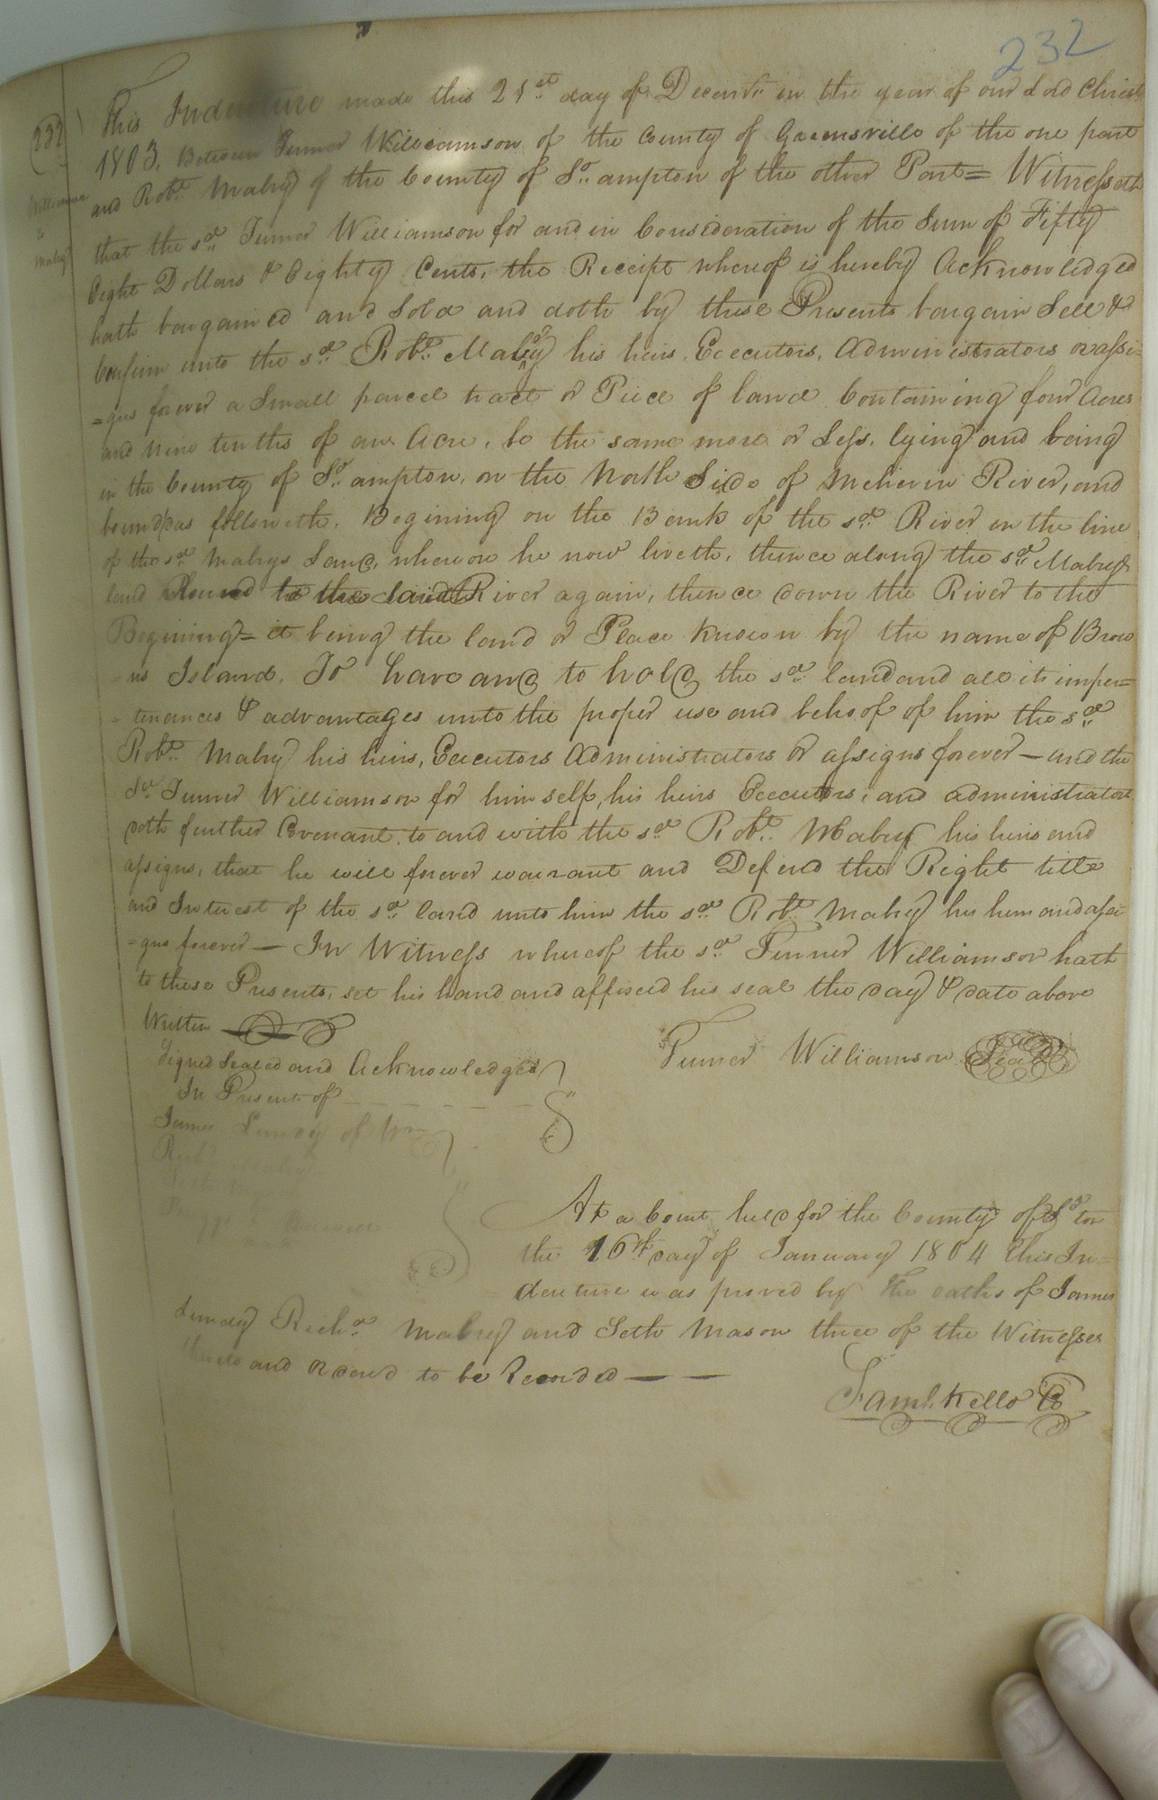 232
232
Williamson
to
Mabry
This Indenture made this 21st day of Decembr. in the year of our Lord Christ
1803. Between Turner Williamson of the County of Greensville of the one part
and Robt. Mabry of the County of So.ampton of the other Part = Witnesseth
that the sd. Turner Williamson for and in Consideration of the Sum of Fifty
Eight Dollars & Eighty Cents, the Receipt whereof is hereby Acknowledged
hath bargained and Sold and doth by these Presents bargain Sell &
Confirm unto the sd. Robt. Mabry his heirs, Executors, Administrators or assi=
=gns forever a Small parcel tract or Piece of land Containing four Acres
and nine tenths of an Acre, be the same more or Less, lying and being
in the County of So.ampton, on the North Side of Meherin River, and
bound as followeth, Begining on the Bank of the sd. River in the line
of the sd. Mabrys Land, whereon he now liveth, thence along the sd. Mabrys
land Round to the said River again, thence down the River to the
Begining = it being the land or Place known by the name of Brow
=ns Island. To have and to hold the sd. land and all its imper=
=tenances & advantages unto the proper use and behoof of him the sd.
Robt. Mabry his heirs, Executors Administrators or assigns forever — and the
sd. Turner Williamson for himself, his heirs Executors, and administrators
doth further Covenant, to and with the sd. Robt. Mabry his heirs and
assigns, that he will forever warrant and Defend the Right title
and Interest of the sd. land unto him the sd. Robt. Mabry his heirs and assi
=gns forever — In Witness whereof the sd. Turner Williamson hath
to these Presents, set his hand and affixed his seal the day & date above
Written
Signed Sealed and Acknowledged
In Present of
Turner Williamson Seal
James Lundy of Wm
Richd. Mabry
At a Court held for the County of So.ton
the 16th day of January 1804 This In=
denture was proved by the oaths of James
Lundy Richd. Mabry and Seth Mason three of the Witnesses
thereto and ordered to be Recorded — —
Saml. Kello C